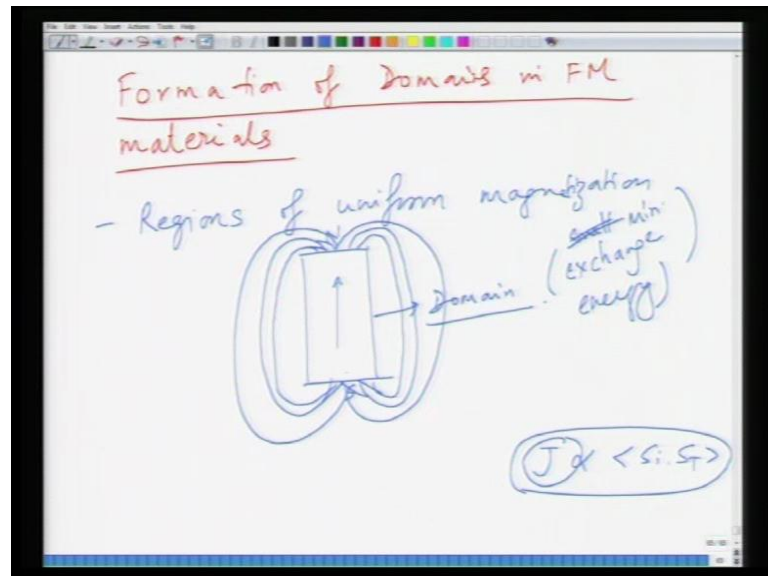 File Edit View Insert Actions Tools Help
Formation of Domains in FM
materials
- Regions of uniform magnetization
Domain. (small Mini
exchange
energy)
S
J α <Si.Sj>